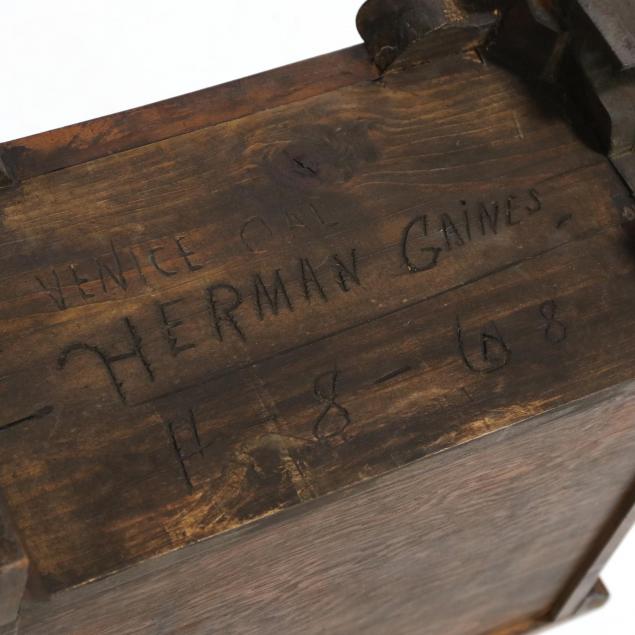 VENICE CAL
HERMAN GAINES
4 - 8 - 68